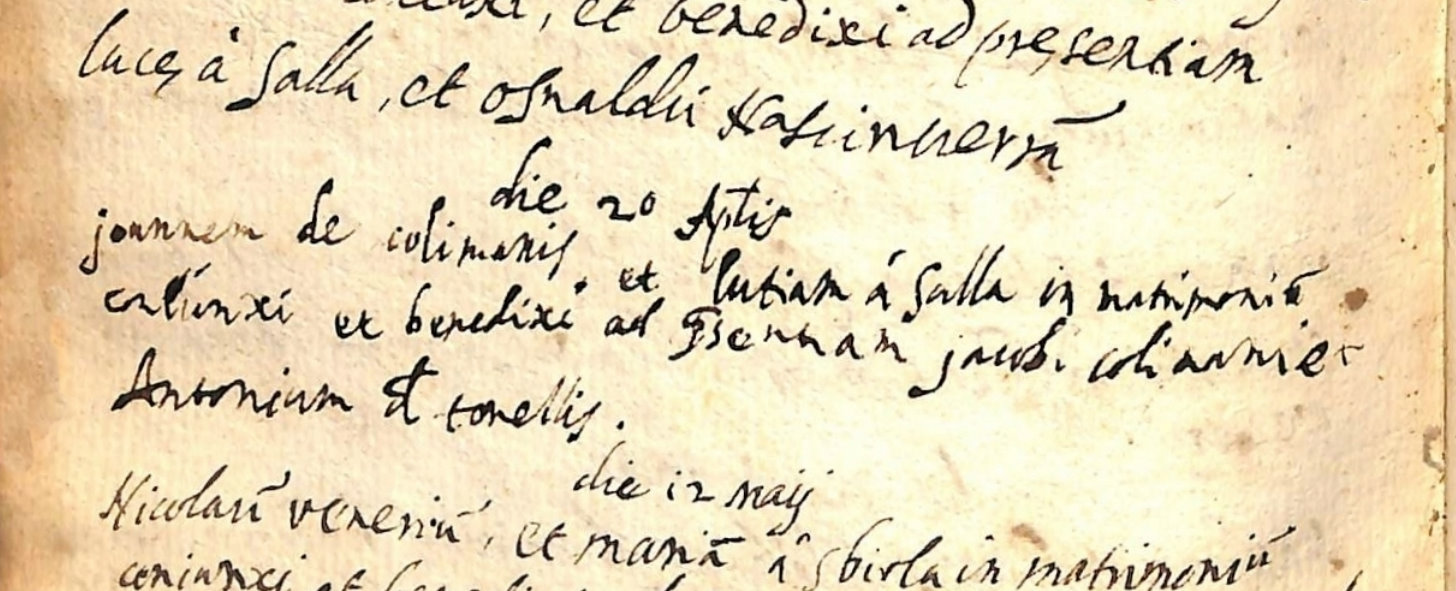 et benedixi ad presentiam
luce, à Salla, et osualdū
die 20 Aplis
joannem de colimanis, et lutiam á Salla in matrimoniū
coniunxi et benedixi ad jacobi colimani et
Antonium d tonellis.
die 12 maij
Nicolaū veneriū, et mariā â sbirla in matrimoniū
coniunxi et